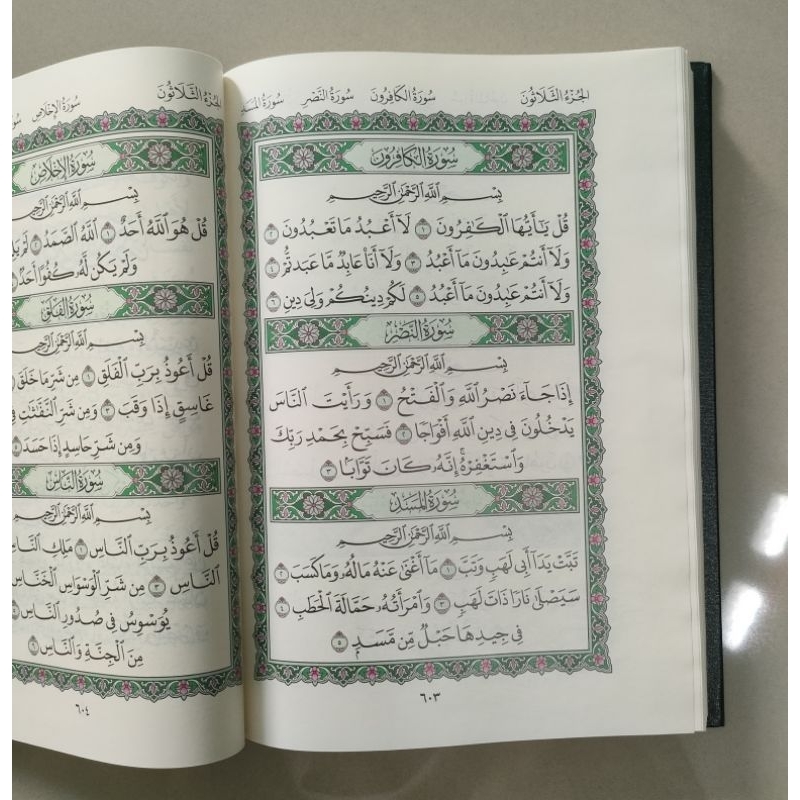 الجزء الثلاثون سورة الكافرون سورة النصر سورة المسد
سُورَةُ الكَافِرُونَ
بِسْمِ اللَّهِ الرَّحْمَٰنِ الرَّحِيمِ
قُلْ يَٰٓأَيُّهَا الْكَٰفِرُونَ ١ لَآ أَعْبُدُ مَا تَعْبُدُونَ ٢
وَلَآ أَنتُمْ عَٰبِدُونَ مَآ أَعْبُدُ ٣ وَلَآ أَنَا۠ عَابِدٌ مَّا عَبَدتُّمْ ٤
وَلَآ أَنتُمْ عَٰبِدُونَ مَآ أَعْبُدُ ٥ لَكُمْ دِينُكُمْ وَلِيَ دِينِ ٦
سُورَةُ النَّصْرِ
بِسْمِ اللَّهِ الرَّحْمَٰنِ الرَّحِيمِ
إِذَا جَآءَ نَصْرُ اللَّهِ وَالْفَتْحُ ١ وَرَأَيْتَ النَّاسَ
يَدْخُلُونَ فِي دِينِ اللَّهِ أَفْوَاجًا ٢ فَسَبِّحْ بِحَمْدِ رَبِّكَ
وَاسْتَغْفِرْهُ إِنَّهُۥ كَانَ تَوَّابًۢا ٣
سُورَةُ المَسَدِ
بِسْمِ اللَّهِ الرَّحْمَٰنِ الرَّحِيمِ
تَبَّتْ يَدَآ أَبِي لَهَبٍ وَتَبَّ ١ مَآ أَغْنَىٰ عَنْهُ مَالُهُۥ وَمَا كَسَبَ ٢
سَيَصْلَىٰ نَارًا ذَاتَ لَهَبٍ ٣ وَامْرَأَتُهُۥ حَمَّالَةَ الْحَطَبِ ٤
فِي جِيدِهَا حَبْلٌ مِّن مَّسَدٍۭ ٥
٦٠٣
الجزء الثلاثون سورة الإخلاص
سُورَةُ الإِخْلَاصِ
بِسْمِ اللَّهِ الرَّحْمَٰنِ الرَّحِيمِ
قُلْ هُوَ اللَّهُ أَحَدٌ ١ اللَّهُ الصَّمَدُ ٢ لَمْ
وَلَمْ يَكُن لَّهُۥ كُفُوًا أَحَدٌۢ
سُورَةُ الفَلَقِ
بِسْمِ اللَّهِ الرَّحْمَٰنِ الرَّحِيمِ
قُلْ أَعُوذُ بِرَبِّ الْفَلَقِ ١ مِن شَرِّ مَا خَلَقَ
غَاسِقٍ إِذَا وَقَبَ ٣ وَمِن شَرِّ النَّفَّٰثَٰتِ
وَمِن شَرِّ حَاسِدٍ إِذَا حَسَدَ
سُورَةُ النَّاسِ
بِسْمِ اللَّهِ الرَّحْمَٰنِ الرَّحِيمِ
قُلْ أَعُوذُ بِرَبِّ النَّاسِ ١ مَلِكِ
النَّاسِ ٣ مِن شَرِّ الْوَسْوَاسِ الْخَنَّاسِ
يُوَسْوِسُ فِي صُدُورِ النَّاسِ
مِنَ الْجِنَّةِ وَالنَّاسِ ٦
٦٠٤